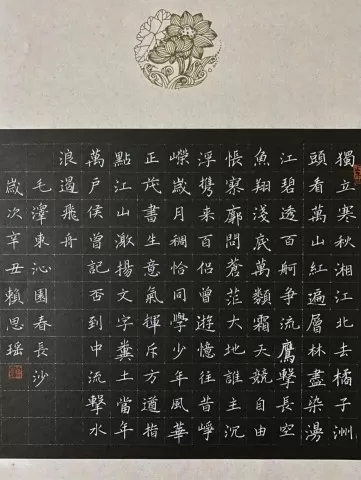 獨立寒秋湘江北去橘子洲
頭看萬山紅遍層林盡染漫
江碧透百舸争流鷹擊長空
魚翔淺底萬類霜天競自由
悵寥廓問蒼茫大地誰主沉
浮携來百侶曾遊憶往昔崢
嶸歲月稠恰同學少年風華
正茂書生意氣揮斥方遒指
點江山激揚文字糞土當年
萬戶侯曾記否到中流擊水
浪遏飛舟
毛澤東沁園春長沙
歲次辛丑賴思瑤